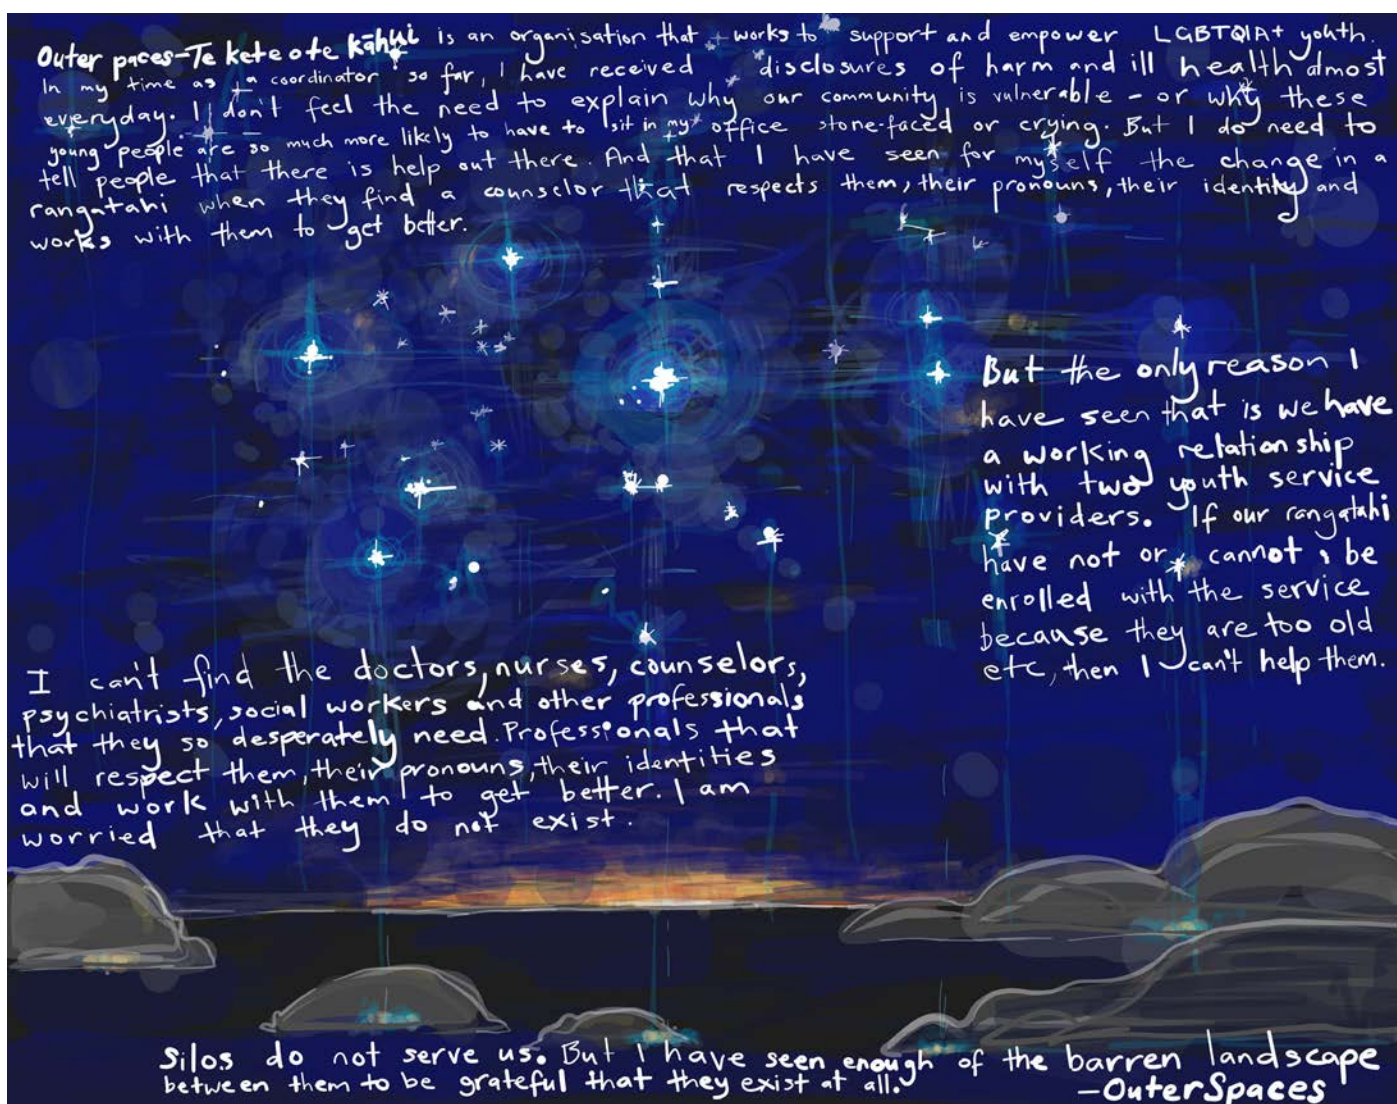 Outer paces-Te kete o te kāhui is an organisation that works to support and empower LGBTQIA+ youth.
In my time as a coordinator so far, I have received disclosures of harm and ill health almost
everyday. I don't feel the need to explain why our community is vulnerable - or why these
young people are so much more likely to have to sit in my office stone-faced or crying. But I do need to
tell people that there is help out there. And that I have seen for myself the change in a
rangatahi when they find a counselor that respects them, their pronouns, their identity and
works with them to get better.
But the only reason I
have seen that is we have
a working relationship
with two youth service
providers. If our rangatahi
have not or cannot be
enrolled with the service
because they are too old
etc, then I can't help them.
I can't find the doctors, nurses, counselors,
psychiatrists, social workers and other professionals
that they so desperately need. Professionals that
will respect them, their pronouns, their identities
and work with them to get better. I am
worried that they do not exist.
Silos do not serve us. But I have seen enough of the barren landscape
between them to be grateful that they exist at all.
-OuterSpaces